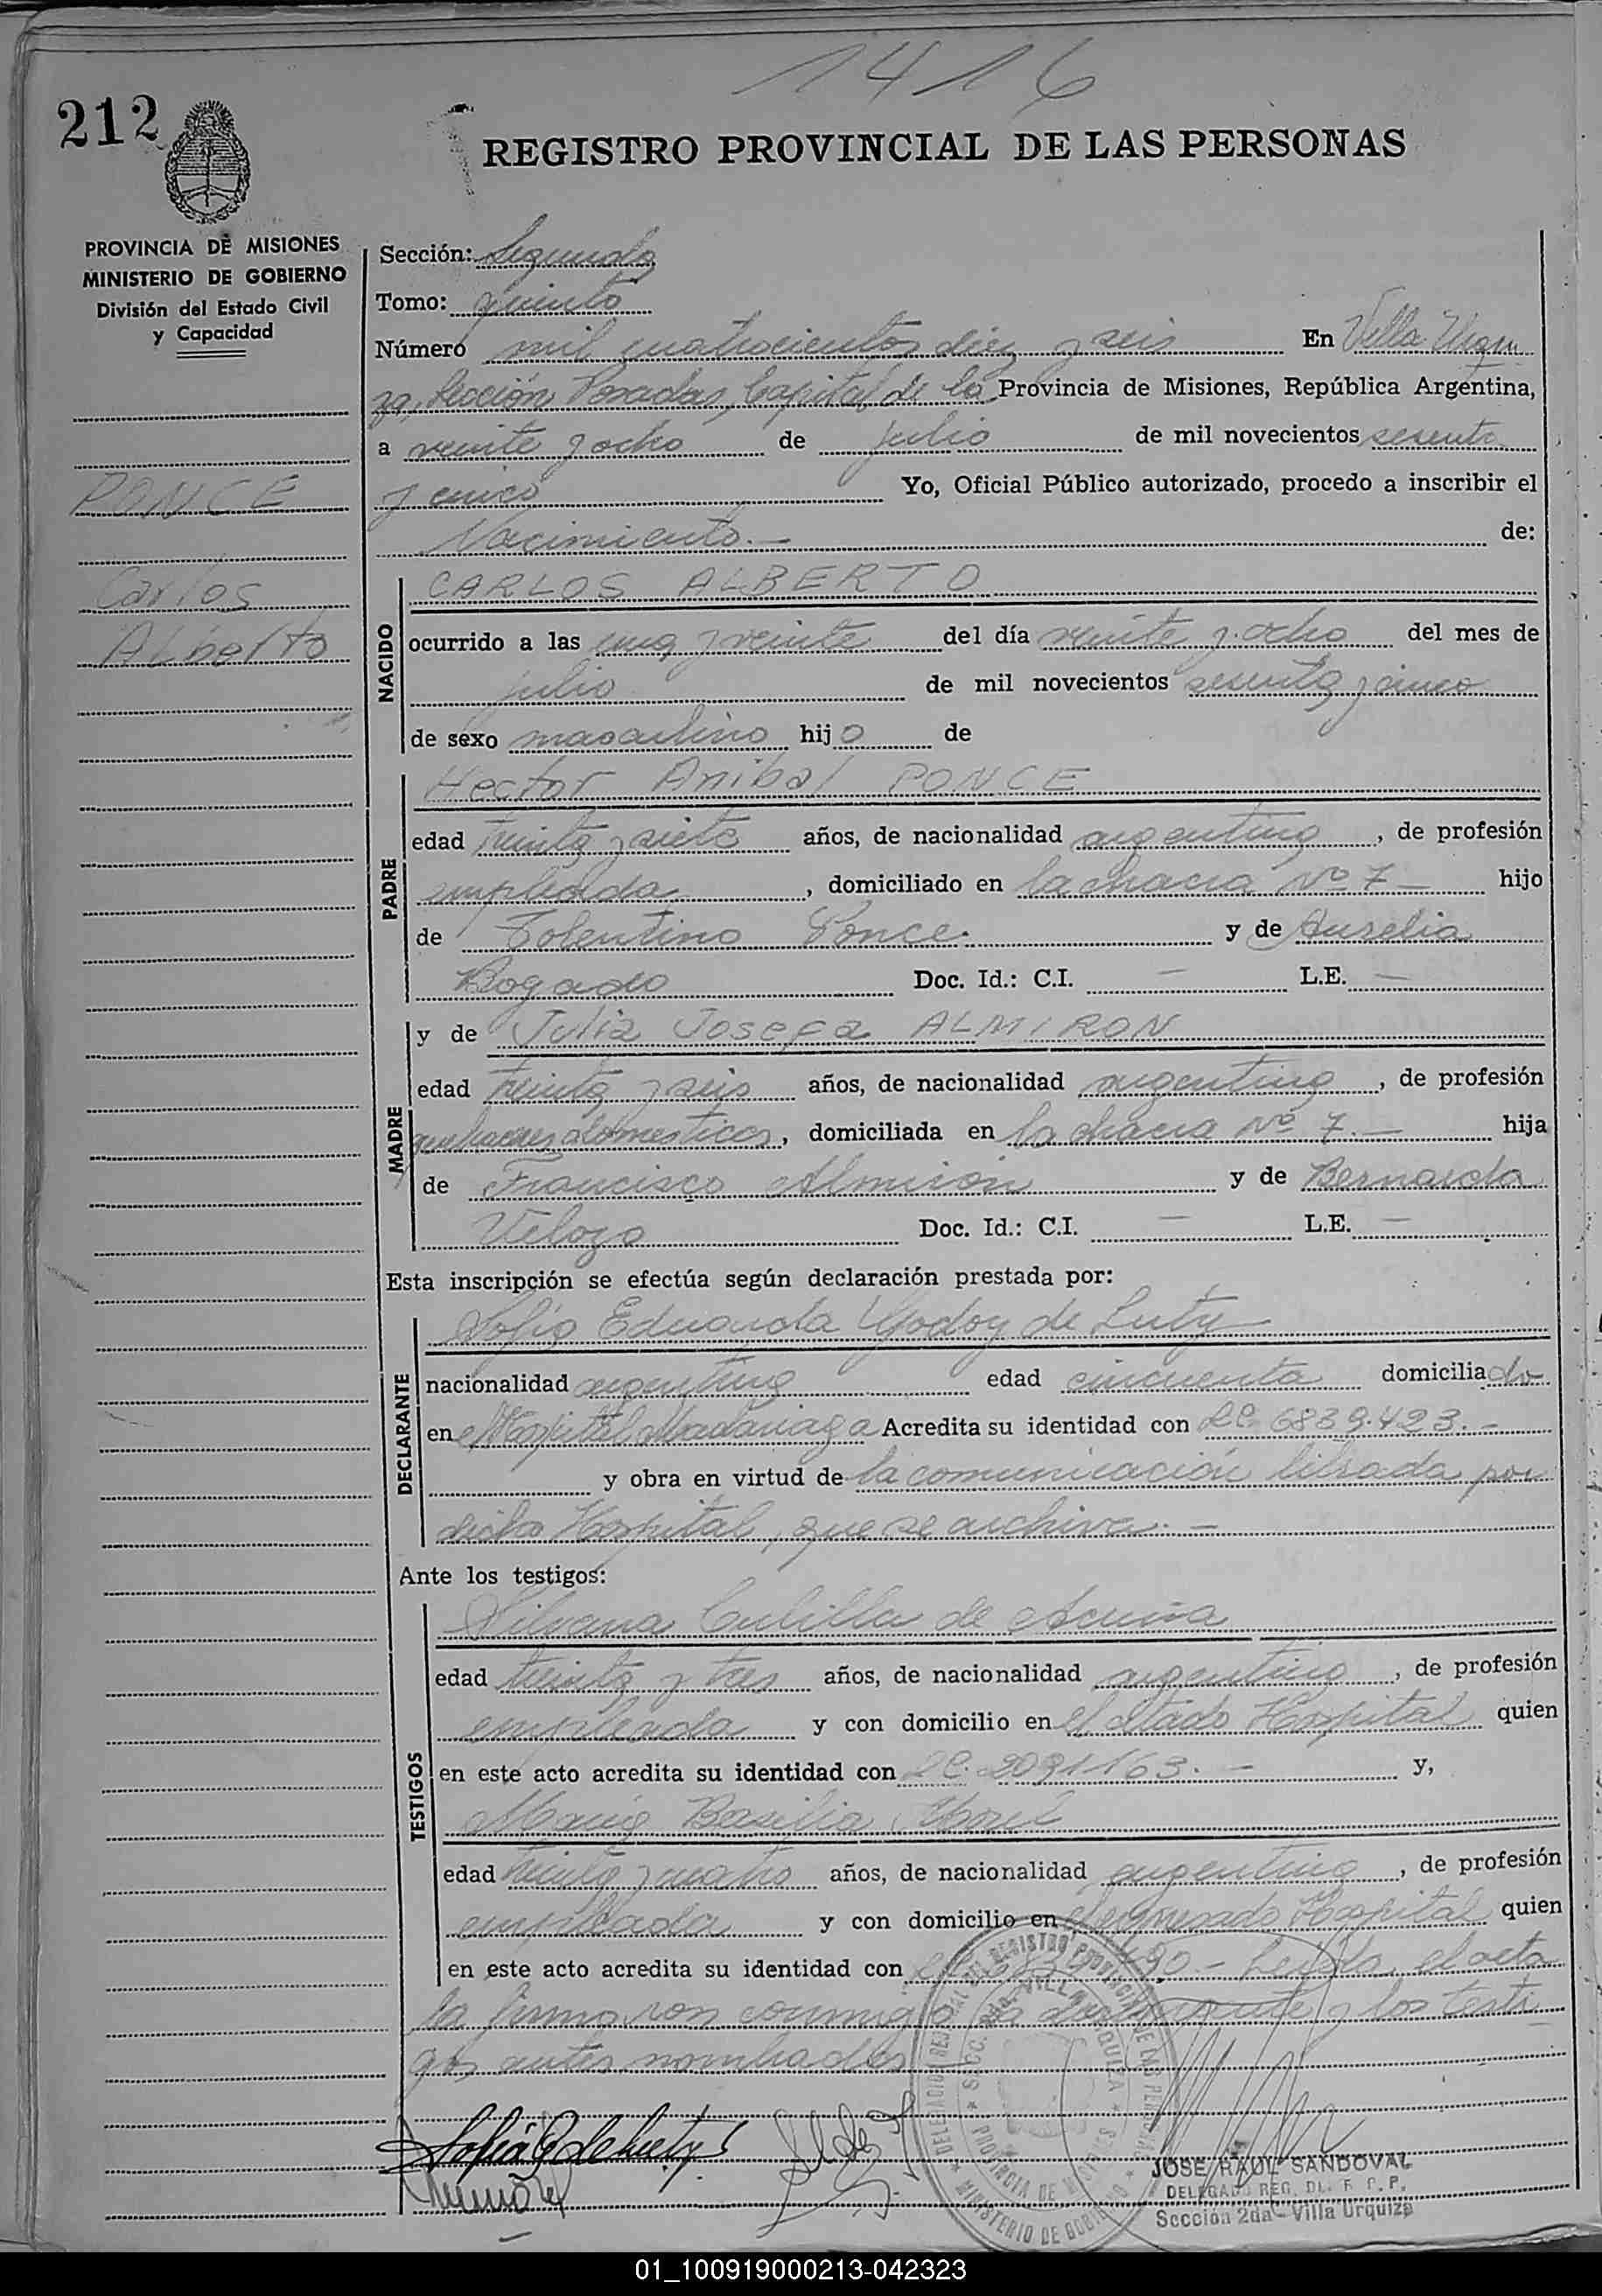 1416
212
REGISTRO PROVINCIAL DE LAS PERSONAS
PROVINCIA DE MISIONES
MINISTERIO DE GOBIERNO
División del Estado Civil
y Capacidad
PONCE
Carlos
Alberto
Sección: Segunda
Tomo: quinto
Número mil cuatrocientos diez y seis En Villa Urqui
za, Sección Posadas, Capital de la Provincia de Misiones, República Argentina,
a veinte y ocho de julio de mil novecientos sesenta
y cinco Yo, Oficial Público autorizado, procedo a inscribir el
Nacimiento.- de:
NACIDO
CARLOS ALBERTO
ocurrido a las una y veinte del día veinte y ocho del mes de
julio de mil novecientos sesenta y cinco
de sexo masculino hijo de
PADRE
Hector Anibal PONCE
edad treinta y siete años, de nacionalidad argentina, de profesión
empleado, domiciliado en la chacra Nº 7 - hijo
de Tolentino Ponce. y de Aurelia
Bogado Doc. Id.: C.I. - L.E. -
MADRE
y de Julia Josefa ALMIRON
edad treinta y seis años, de nacionalidad argentina, de profesión
quehaceres domesticos, domiciliada en la chacra Nº 7.- hija
de Francisco Almirón y de Bernarda
Velozo Doc. Id.: C.I. - L.E. -
Esta inscripción se efectúa según declaración prestada por:
DECLARANTE
Sofia Eduarda Godoy de Luty
nacionalidad argentina edad cincuenta domiciliada
en el Hospital Madariaga Acredita su identidad con LC. 6839.423.-
y obra en virtud de la comunicación librada por
dicho Hospital, que se archiva.-
Ante los testigos:
TESTIGOS
Silvana Cubilla de Acuña
edad treinta y tres años, de nacionalidad argentina, de profesión
empleada y con domicilio en el citado Hospital quien
en este acto acredita su identidad con LC. 2091163.- y,
Maria Basilia Abril
edad treinta y cuatro años, de nacionalidad argentina, de profesión
empleada y con domicilio en el Hospital quien
en este acto acredita su identidad con 490.- Leída el acta
la firmaron conmigo la declarante y los testi
gos antes nombrados
Sofia G de Luty
DELEGACION REGIONAL DEL REGISTRO PROVINCIAL DE LAS PERSONAS
SECC. 2da. VILLA URQUIZA
PROVINCIA DE MISIONES
MINISTERIO DE GOBIERNO
JOSE RAUL SANDOVAL
DELEGADO REG. DEL R. P. P.
Sección 2da - Villa Urquiza
01_100919000213-042323